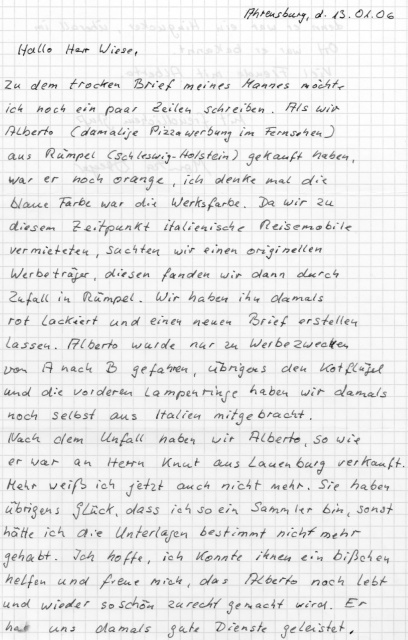 Ahrensburg, d. 13.01.06
Hallo Herr Wiese,
Zu dem trocken Brief meines Mannes möchte
ich noch ein paar Zeilen schreiben. Als wir
Alberto (damalige Pizzawerbung im Fernsehen)
aus Rümpel (Schleswig-Holstein) gekauft haben,
war er noch orange, ich denke mal die
blaue Farbe war die Werksfarbe. Da wir zu
diesem Zeitpunkt italienische Reisemobile
vermieteten, suchten wir einen originellen
Werbeträger, diesen fanden wir dann durch
Zufall in Rümpel. Wir haben ihn damals
rot lackiert und einen neuen Brief erstellen
lassen. Alberto wurde nur zu Werbezwecken
von A nach B gefahren, übrigens den Kotflügel
und die vorderen Lampenringe haben wir damals
noch selbst aus Italien mitgebracht.
Nach dem Unfall haben wir Alberto, so wie
er war an Herrn Knut aus Lauenburg verkauft.
Mehr weiß ich jetzt auch nicht mehr. Sie haben
übrigens Glück, dass ich so ein Sammler bin, sonst
hätte ich die Unterlagen bestimmt nicht mehr
gehabt. Ich hoffe, ich konnte ihnen ein bißchen
helfen und freue mich, das Alberto noch lebt
und wieder so schön zurecht gemacht wird. Er
hat uns damals gute Dienste geleistet.